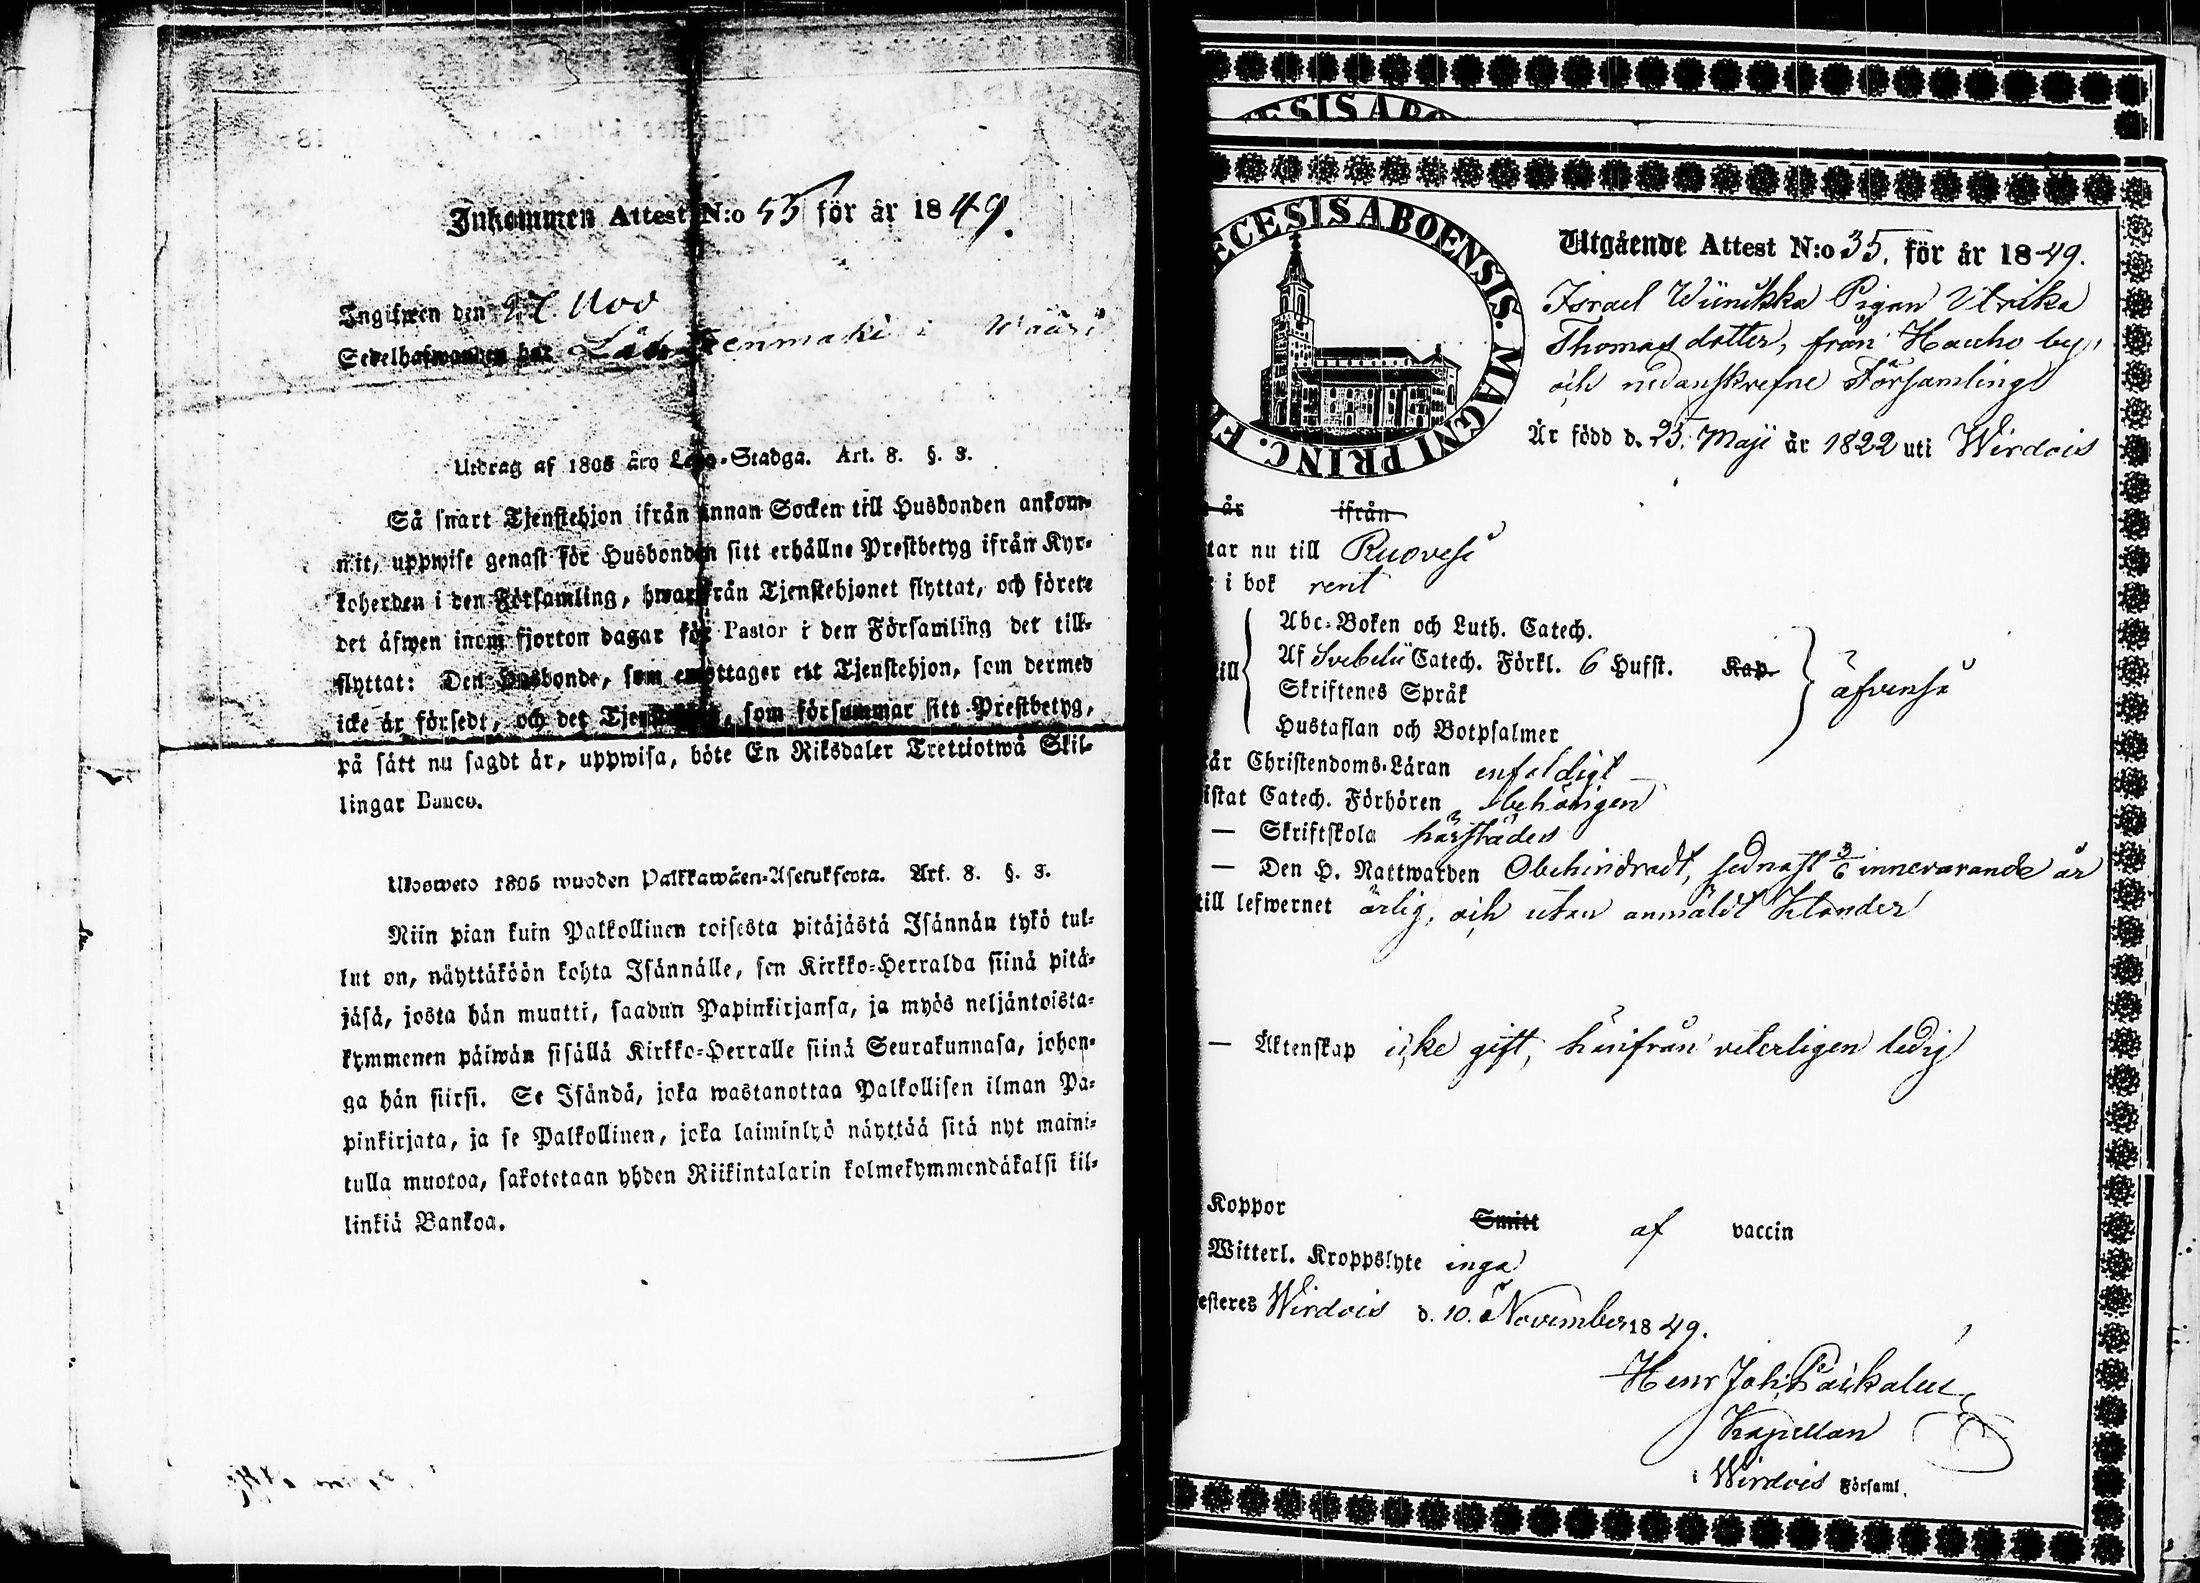 Inkommen Attest N:o 55 för år 1849.
Ingifwen den 27. Nov
Sedelhafwanden har i Wääri
Utdrag af 1805 års Lego-Stadga. Art. 8. §. 3.
Så snart Tjenstehjon ifrån annan Socken till Husbonden ankom-
mit, uppwise genast för Husbonden sitt erhållne Prestbetyg ifrån Kyr-
koherden i den Församling, hwarifrån Tjenstehjonet flyttat, och förete
det äfwen inom fjorton dagar för Pastor i den Församling det till-
flyttat: Den Husbonde, som emottager ett Tjenstehjon, som dermed
icke är försedt, och det Tjenstehjon, som försummar sitt Prestbetyg,
på sätt nu sagdt är, uppwisa, böte En Riksdaler Trettiotwå Skil-
lingar Banco.
Ulosweto 1805 wuoden Palkkawäen-Asetuksesta. Art. 8. §. 3.
Niin pian kuin Palkollinen toisesta pitäjästä Isännän tykö tul-
lut on, näyttäköön kohta Isännälle, sen Kirkko-Herralda siinä pitä-
jäsä, josta hän muutti, saadun Papinkirjansa, ja myös neljäntoista-
kymmenen päiwän sisällä Kirkko-Herralle siinä Seurakunnasa, johon-
ga hän siirsi. Se Isändä, joka wastanottaa Palkollisen ilman Pa-
pinkirjata, ja se Palkollinen, joka laiminlyö näyttää sitä nyt maini-
tulla muotoa, sakotetaan yhden Riikintalarin kolmekymmendäkaksi kil-
linkiä Bankoa.
ESIS ABO
ECESIS ABOENSIS. MAGNI PRINC. F
Utgående Attest N:o 35. för år 1849.
Israel Wiinikka Pigan Ulrika
Thomasdotter, från Hauho by,
och nedanskrefne Församling
Är född d. 25. Maji år 1822 uti Wirdois
år ifrån
tar nu till Ruovesi
i bok rent
Abc-Boken och Luth. Catech.
Af Svebelii Catech. Förkl. 6 Hufst. Kap.
Skriftenes Språk
Hustaflan och Botpsalmer
äfvenså
tår Christendoms-Läran enfaldigt
istat Catech. Förhören behörigen
— Skriftskola härstädes
— Den H. Nattwarden Obehindradt, sednast 3/6 innevarande år
till lefwernet ärlig, och utan anmäldt klander
— Äktenskap icke gift, härifrån veterligen ledig
Koppor Smitt af vaccin
Witterl. Kroppslyte inga
esteres Wirdois d. 10. November 1849.
Henr Joh.
Kapellan
i Wirdois Församl.